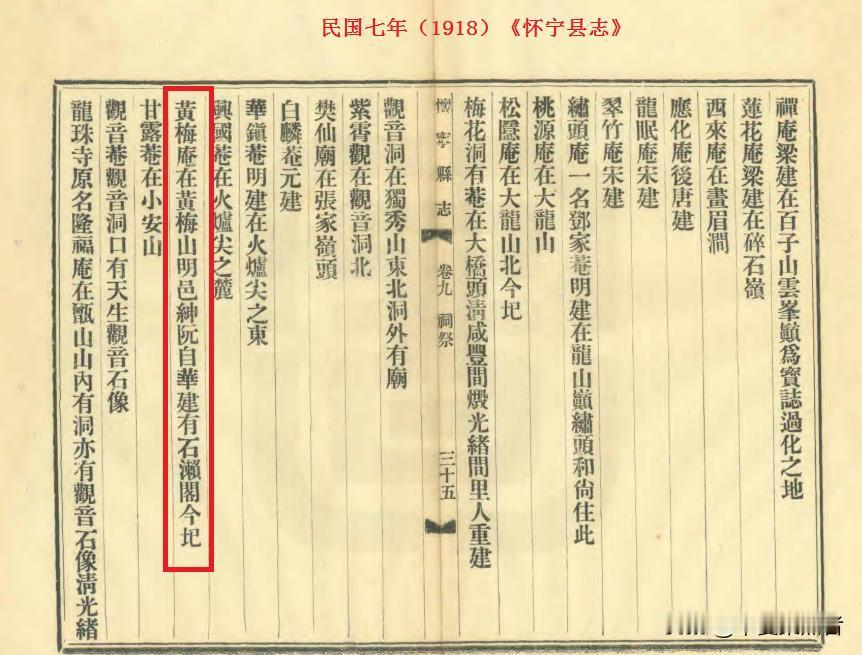 民国七年（1918）《怀宁县志》
禪庵梁建在百子山雲峯巓爲寶誌過化之地
蓮花庵梁建在碎石嶺
西來庵在畫眉澗
應化庵後唐建
龍眠庵宋建
翠竹庵宋建
繡頭庵一名鄧家菴明建在龍山巓繡頭和尙住此
桃源庵在大龍山
松隱庵在大龍山北今圯
梅花洞有菴在大橋頭淸咸豐間燬光緒間里人重建
懷寧縣志
卷九 祠祭
三十五
觀音洞在獨秀山東北洞外有廟
紫霄觀在觀音洞北
樊仙廟在張家嶺頭
白麟菴元建
華鎭菴明建在火爐尖之東
興國菴在火爐尖之麓
黃梅庵在黃梅山明邑紳阮自華建有石瀨閣今圯
甘露菴在小安山
觀音菴觀音洞口有天生觀音石像
龍珠寺原名隆福庵在甑山山內有洞亦有觀音石像淸光緒